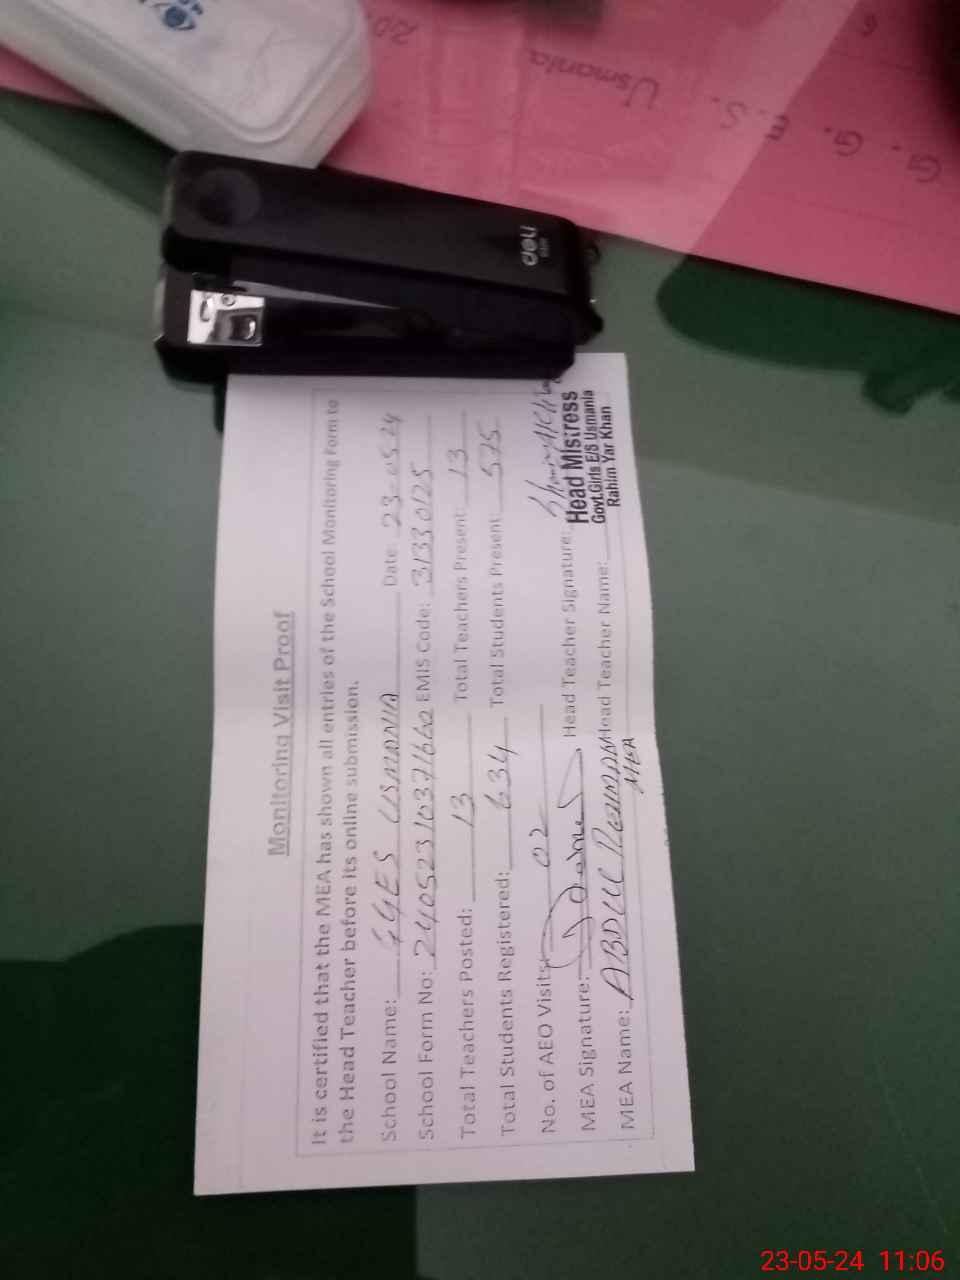 G. G. E. S. Usmania
deli
Monitoring Visit Proof
It is certified that the MEA has shown all entries of the School Monitoring Form to
the Head Teacher before its online submission.
School Name: GGES USMANIA Date: 23-0524
School Form No: 24052310371662 EMIS Code: 31330125
Total Teachers Posted: 13 Total Teachers Present: 13
Total Students Registered: 634 Total Students Present: 575
No. of AEO Visits: 02
MEA Signature: Head Teacher Signature:
Head Mistress
Govt.Girls E/S Usmania
Rahim Yar Khan
MEA Name: ABDUL REHMAN Head Teacher Name:
MEA
23-05-24 11:06